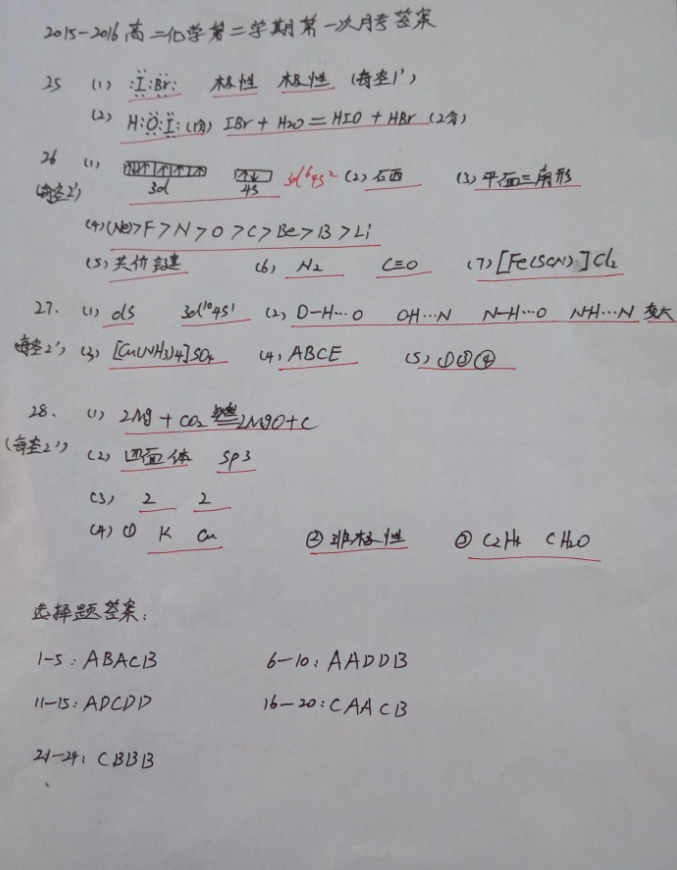 2015-2016高二化学第二学期第一次月考答案
25 (1) :I:Br: 极性 极性 (每空1')
(2) H:O:I: (1分) IBr + H2O = HIO + HBr (2分)
26 (1) 3d 4s 3d⁶4s² (2) 石墨 (3) 平面三角形
(每空2')
(4) (Ne)>F>N>O>C>Be>B>Li
(5) 共价键 (6) N2 C≡O (7) [Fe(SCN)]Cl2
27. (1) dS 3d¹⁰4s¹ (2) O-H…O OH…N N-H…O NH…N 变大
(每空2') (3) [Cu(NH3)4]SO4 (4) ABCE (5) ①③④
28. (1) 2Mg + CO2 点燃 2MgO+C
(每空2') (2) 四面体 sp3
(3) 2 2
(4) ① K Cu ② 非极性 ③ C2H4 CH2O
选择题答案:
1-5: ABACB 6-10: AADDB
11-15: ADCDD 16-20: CAACB
21-24: CBBB